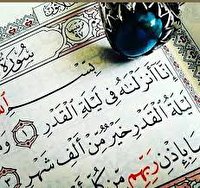 سُورَةُ
بِسْمِ
إِنَّا أَنزَلْنَٰهُ فِى لَيْلَةِ الْقَدْرِ ١
لَيْلَةُ الْقَدْرِ خَيْرٌ مِّنْ أَلْفِ شَهْرٍ ٣
بِإِذْنِ رَبِّهِم مِّن كُلِّ